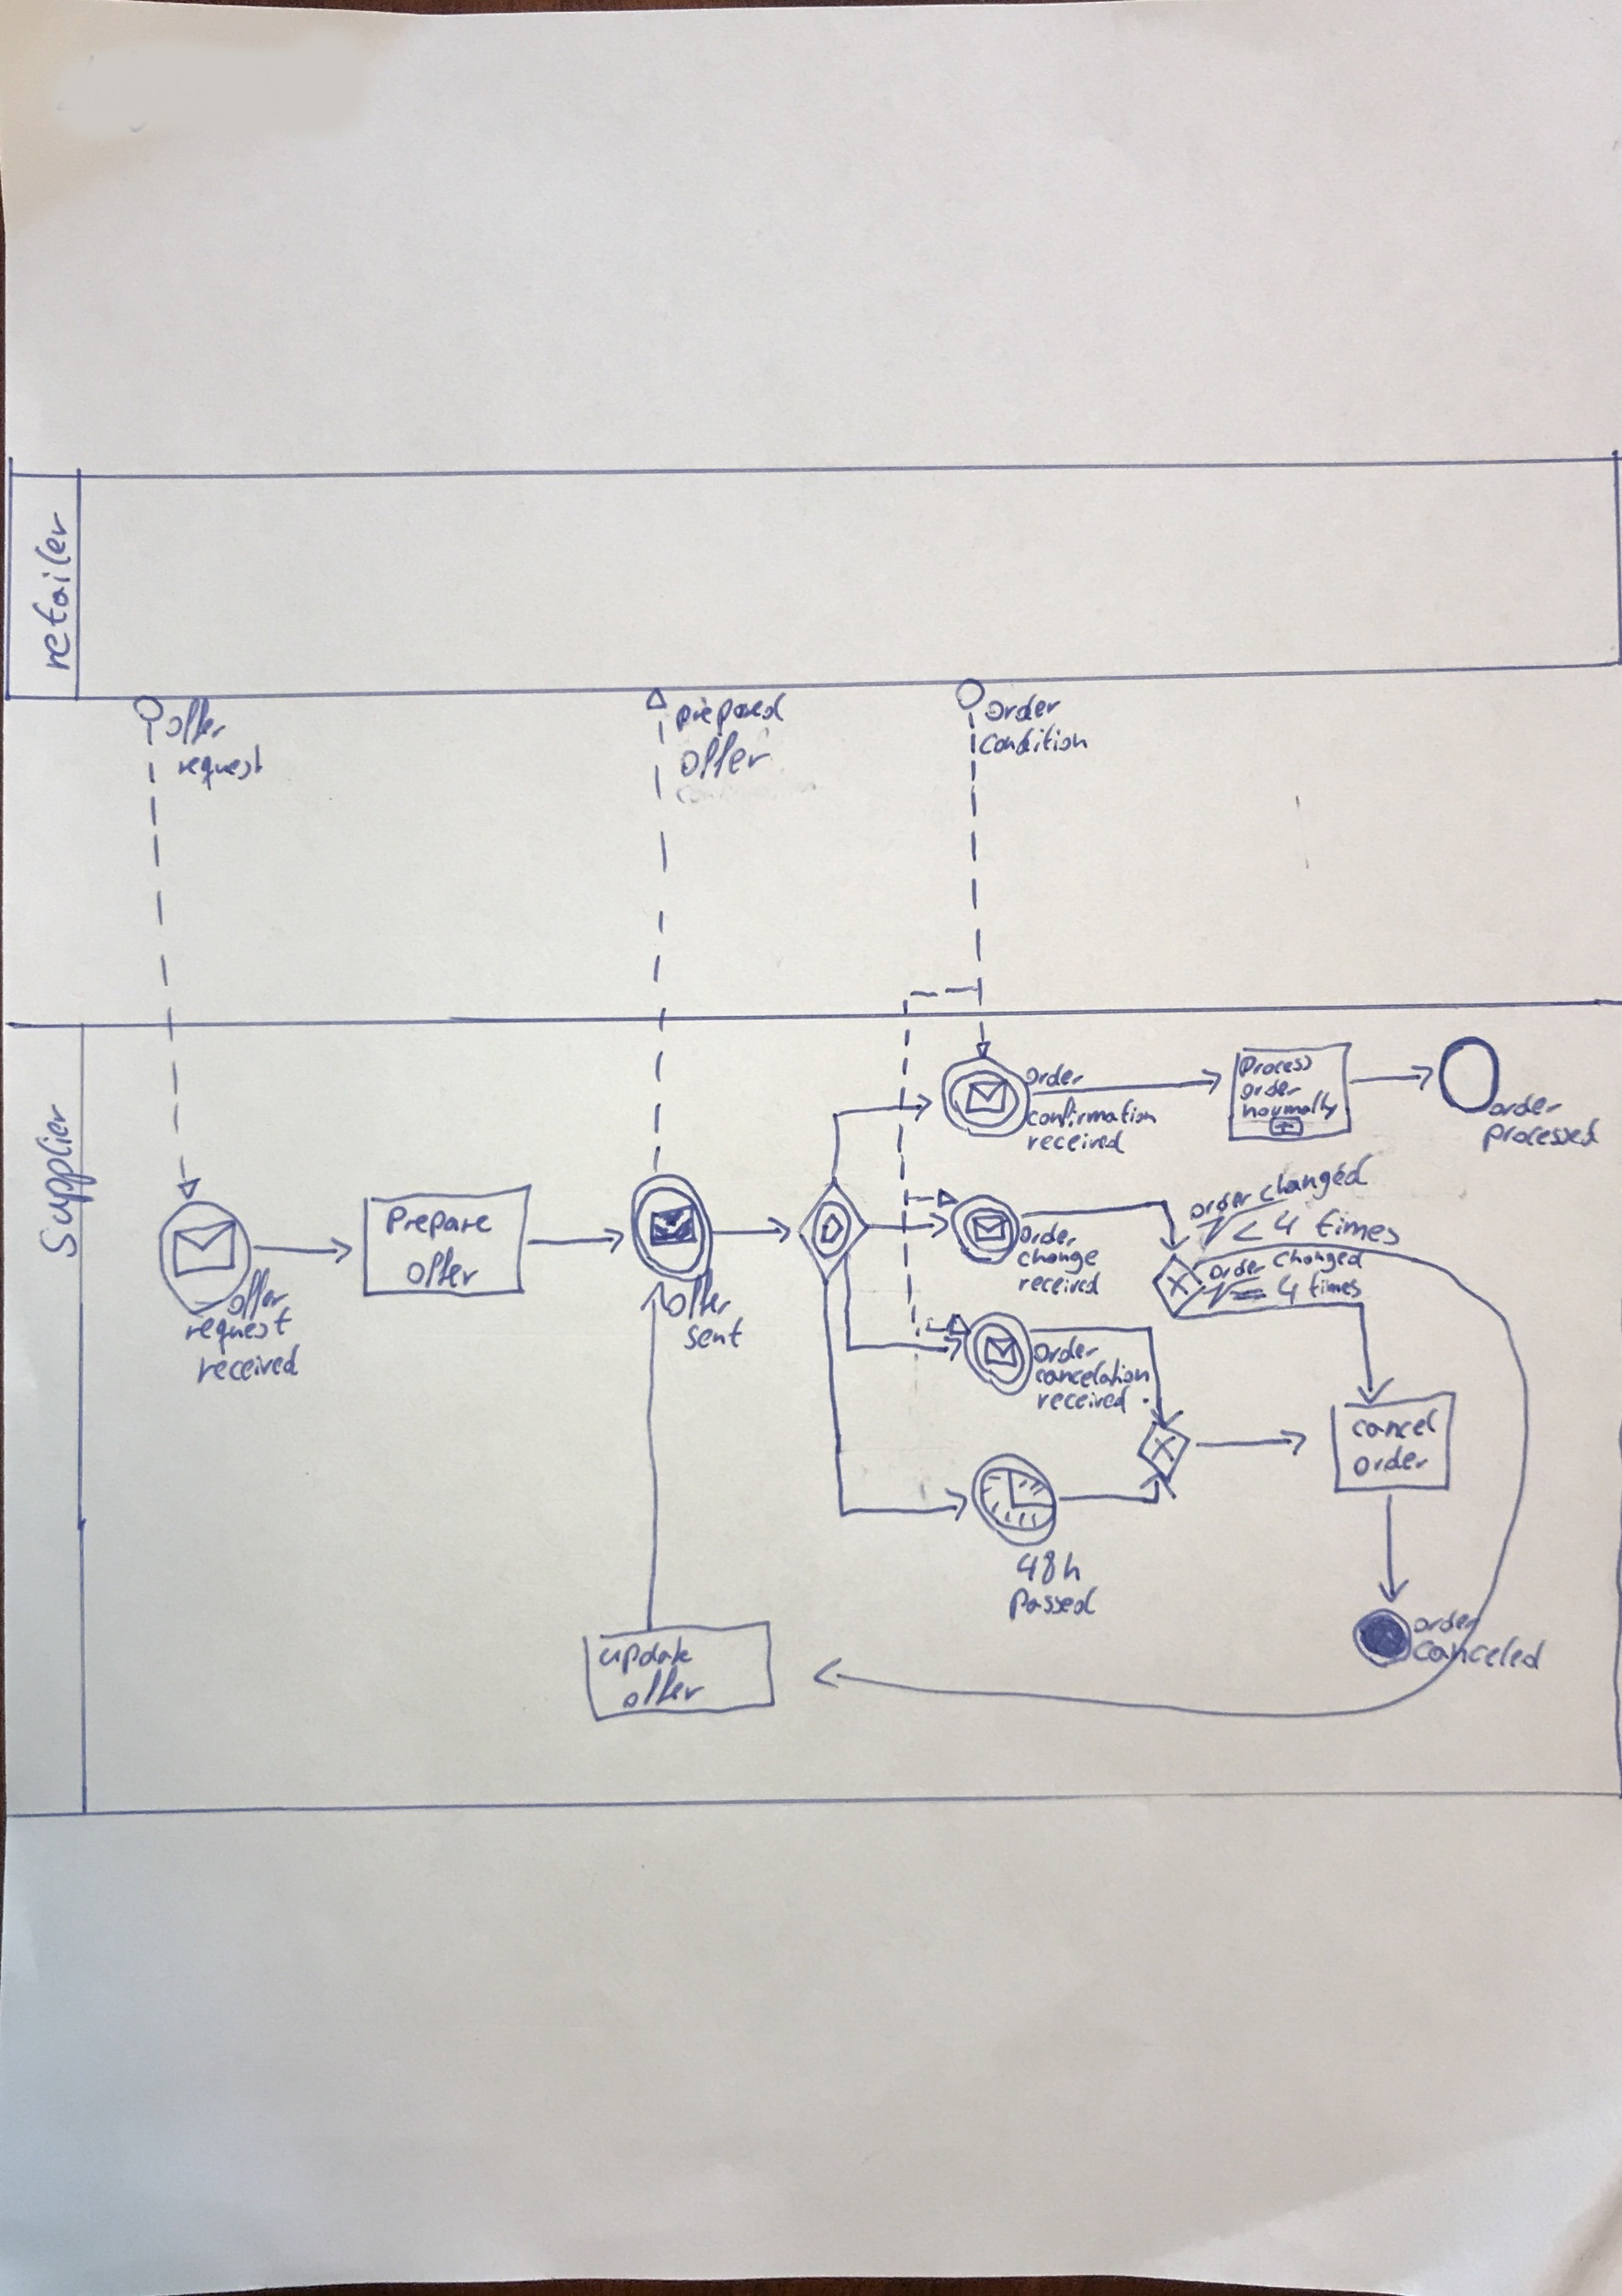 retailer
offer
request
prepared
offer
order
condition
Supplier
offer
request
received
Prepare
offer
offer
sent
order
confirmation
received
Process
order
normally
+
order
processed
order
change
received
order changed
< 4 times
order changed
= 4 times
order
cancelation
received
48h
Passed
cancel
order
order
canceled
update
offer